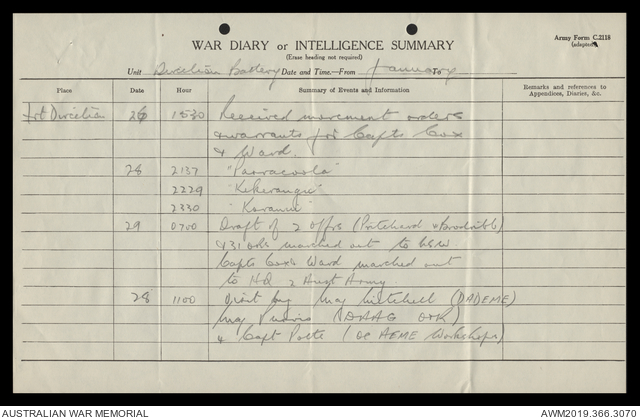 Army Form C.2118
(adapted)
WAR DIARY or INTELLIGENCE SUMMARY
(Erase heading not required)
Unit Direction Battery Date and Time.—From January To
Place Date Hour Summary of Events and Information Remarks and references to Appendices, Diaries, &c.
Direction 26 1530 Received movement orders
& warrants for Capts Cox
& Ward.
28 2137 "Parracoola"
2229
2330
29 0700 Draft of 2 offrs (Pritchard &
& 31 ORs marched out to
Capts Cox & Ward marched out
to HQ 2 Aust Army.
28 1100 Visit by Maj Mitchell (DADEME)
Maj (DAAG
& Capt (OC AEME Workshops)
AUSTRALIAN WAR MEMORIAL
AWM2019.366.3070